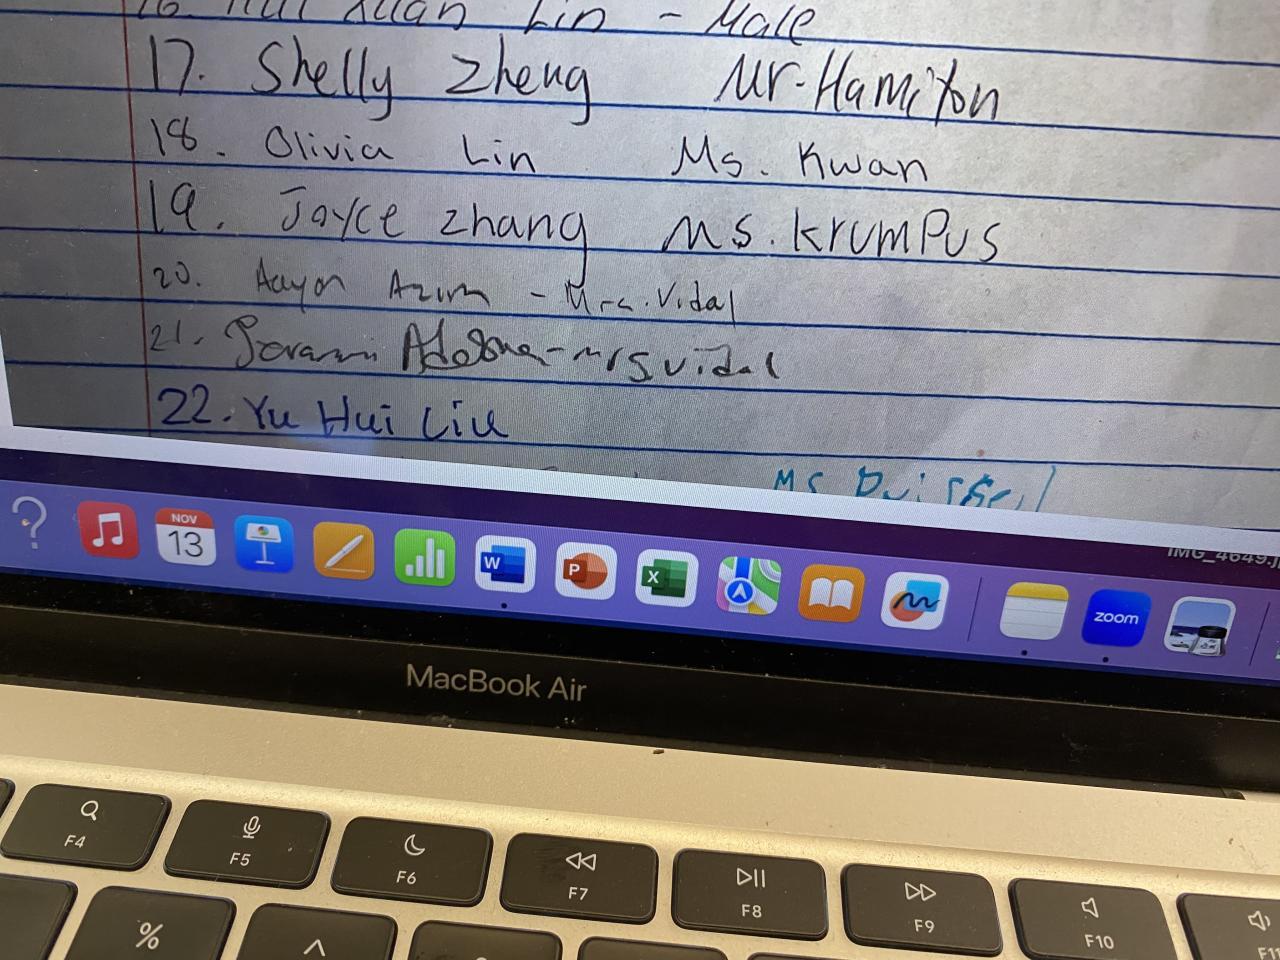 16. Hui Xuan Lin - Male
17. Shelly Zheng Mr. Hamilton
18. Olivia Lin Ms. Kwan
19. Joyce Zhang Ms. Krumpus
20. Aayon Azim - Mrs. Vidal
21. - Mrs Vidal
22. Yu Hui Liu
Ms
?
NOV
13
W
P
X
zoom
IMG_4649.j
MacBook Air
F4
F5
F6
F7
F8
F9
F10
F11
%
^